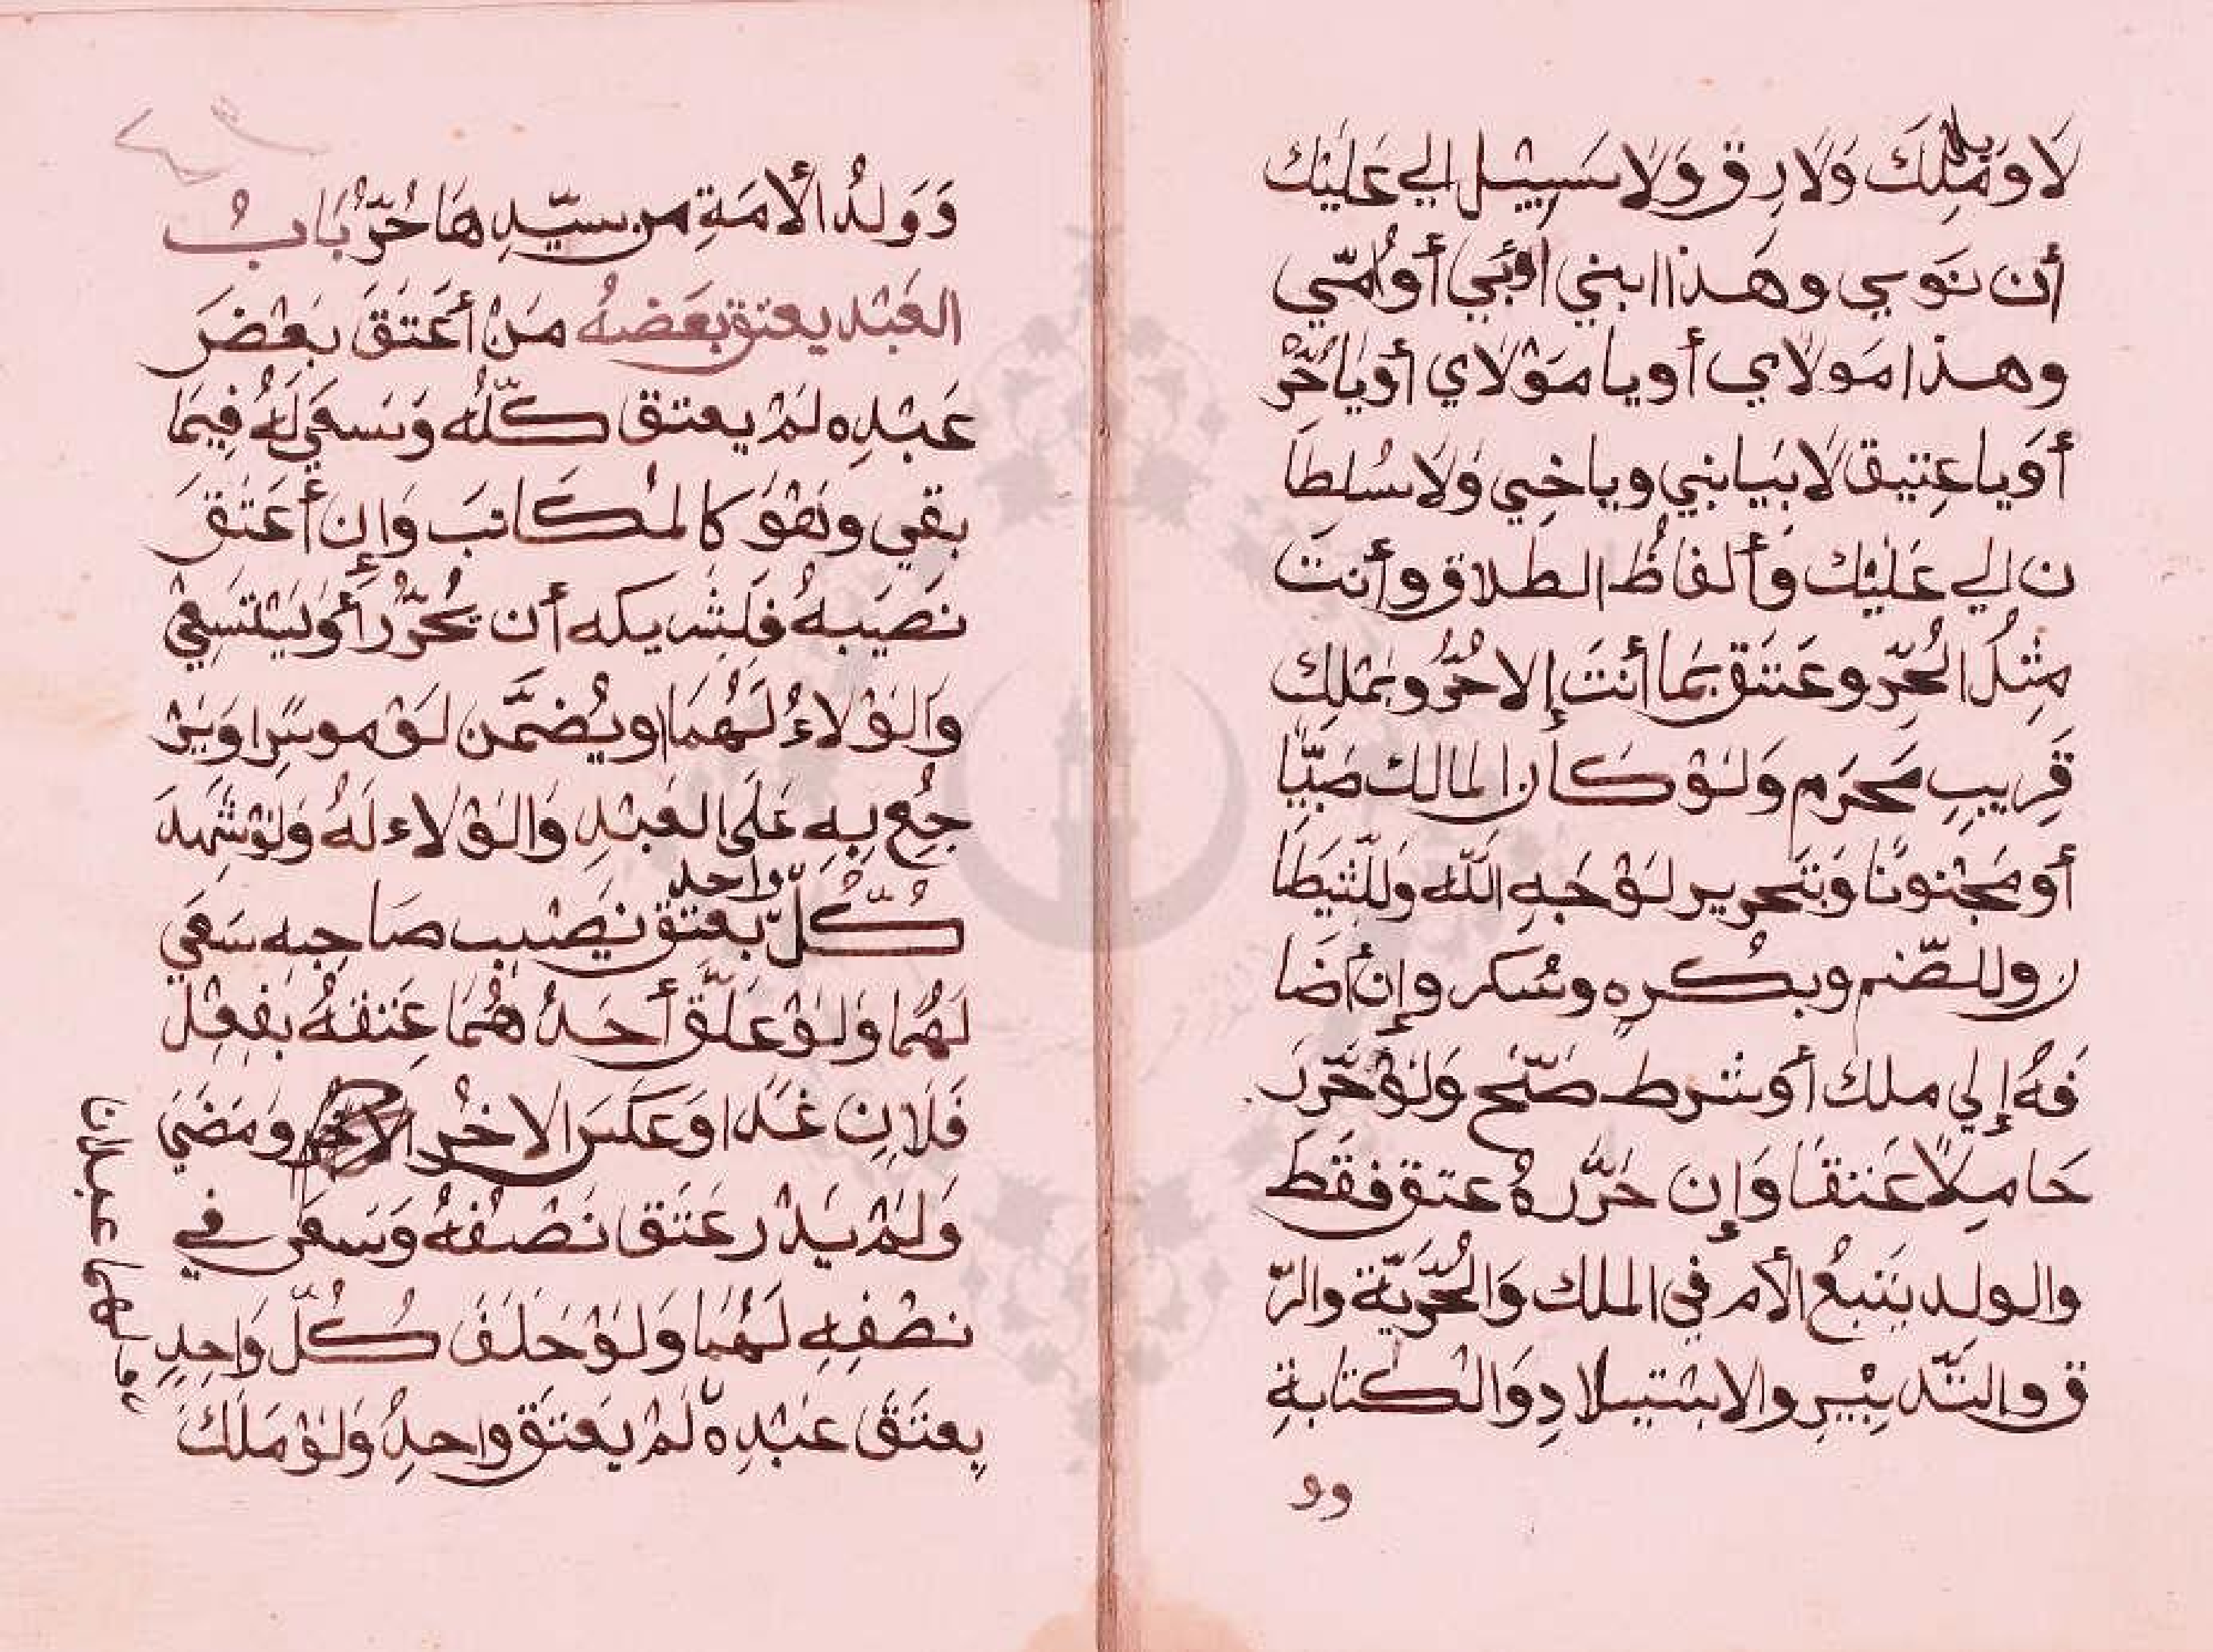 لَا وَملِكَ وَلَا رِق وَلَا سَبِيْل لِي عَلَيْك
أن نَوي وهَذا ابني أو أبي أو أُمّي
وهذا مَولَاي أو يا مَوْلَاي أوْ يَا حُرّ
أوَ يا عِتيق لَا بَيا بني ويا خِي وَلَا سُلطَا
ن لي عَليْك وَألفاظُ الطلاق وأنتَ
مِثلُ الحُرِّ وعَتق بمَا أنتَ إلا حُرُّ وبمَلِك
قِرِيبِ مَحرَم وَلوْ كَان المالك صَبيًّا
أو مَجْنونًا وَبتَحرير لوْجَهِ اللّه وَللشّيطَا
ن وللصّنم وبكُرهٍ وسُكر وإن أضَا
فهُ إلي ملك أو شرط صَحّ وَلوْ حَرّرَ
حَامِلاً عَتقَا وَإن حَرَّرهُ عتق فقَط
والولد يَتبعُ الأم في الملك وَالحُرّيّة والرّ
ق والتّدبِيْرِ والاسْتيلَادِ وَالكتابةِ
وو
وَوَلدُ الأمَةِ من سيّدِهَا حُرّ بَابُ
العَبْد يعتق بَعَضهُ مَنْ أعَتَقَ بَعْضَ
عَبْدِه لمْ يعتق كلّهُ وَسَعَي لهُ فِيمَا
بقي وَهْوَ كالمُكاتبَ وَإن أعَتَقَ
نصَيبهُ فلَشِريكه أن يُحَرِّرَ أوْ لَيسْتَسعِيْ
وَالوْلاءُ لهُمَا او يُضمَّن لوْ موسِرا وَيَرْ
جِعُ بِهِ عَلَى العَبْدِ وَالوْلاء لهُ وَلوْ شَهِدَ
كُلّ واحد بعتق نصَيْب صَاحِبِه سَعَي
لهُمَا وَلوْ عَلَّقَ أحَدُهُمَا عِتقهُ بفِعْل
فَلَانِ غَدَا وَعَكسَ الاخرُ وَمَضَيَ
وَلمْ يَدْر عَتَق نَصْفُهُ وَسَعَى في
نصْفِهِ لهُمَا وَلوْ حَلَفَ كُلّ وَاحِدِ
بِعتَقَ عَبْدِه لَمْ يَعتَق واحِدُ وَلوْ مَلَكَ